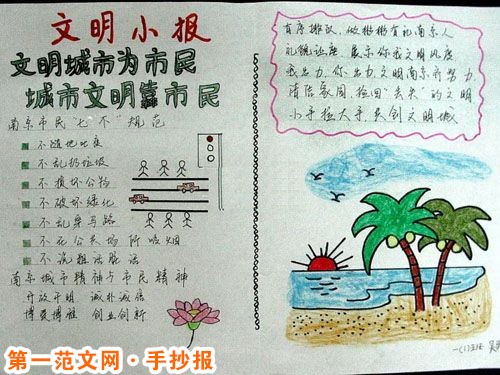 文明小报
文明城市为市民
城市文明靠市民
南京市民"七不"规范
不随地吐痰
不乱扔垃圾
不损坏公物
不破坏绿化
不乱穿马路
不在公共场所吸烟
不说粗话脏话
南京城市精神与市民精神
开放开明 诚朴诚信
博爱博雅 创业创新
有序排队，做彬彬有礼南京人
礼貌让座，展示你我文明风度
我出力，你出力，文明南京齐努力
清洁家园，捡回"丢失"的文明
小手拉大手，共创文明城
一(1)班 吴
第一范文网·手抄报